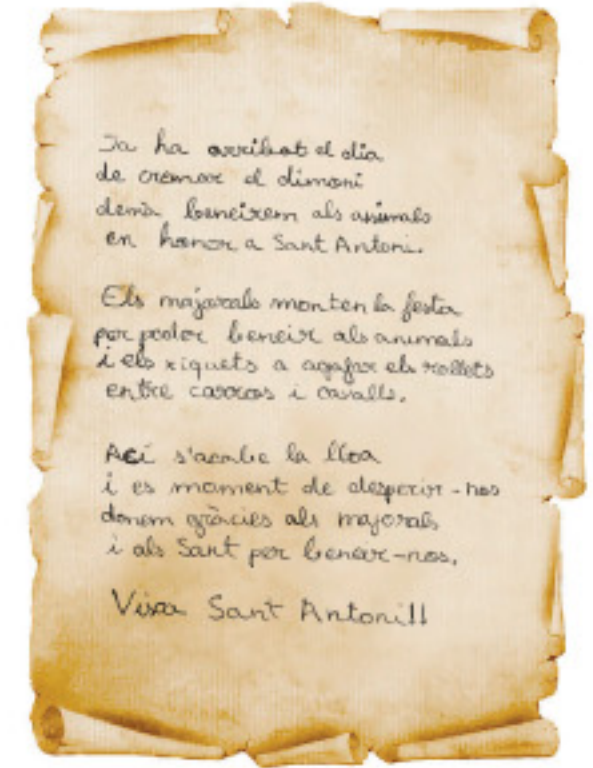 Ja ha arribat el dia
de cremar el dimoni
demà beneirem als animals
en honor a Sant Antoni.
Els majorals monten la festa
per poder beneir als animals
i els xiquets a agafar els rollets
entre carros i cavalls.
Ací s'acabe la lloa
i es moment de despedir-nos
donem gràcies als majorals
i als Sant per beneir-nos.
Visca Sant Antoni!!